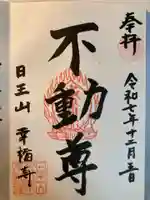 奉拝
令和七年十二月三日
不動尊
日王山
幸福寺